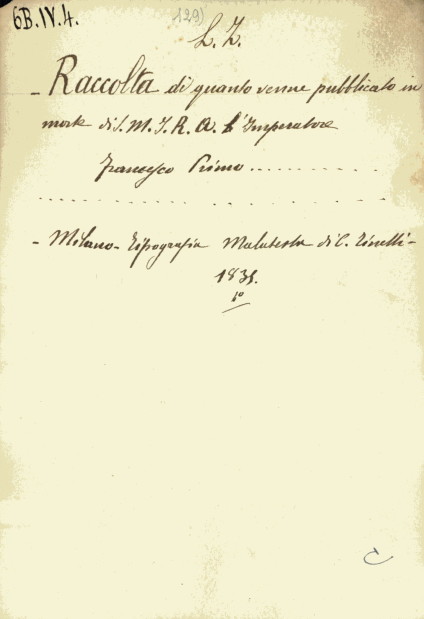 6B.IV.4.
129)
L. Z.
- Raccolta di quanto venne pubblicato in
morte di S. M. I. R. A. l'Imperatore
Francesco Primo ..............
..............
- Milano - Tipografia Malatesta di C. Tinelli -
1835.
4°
C